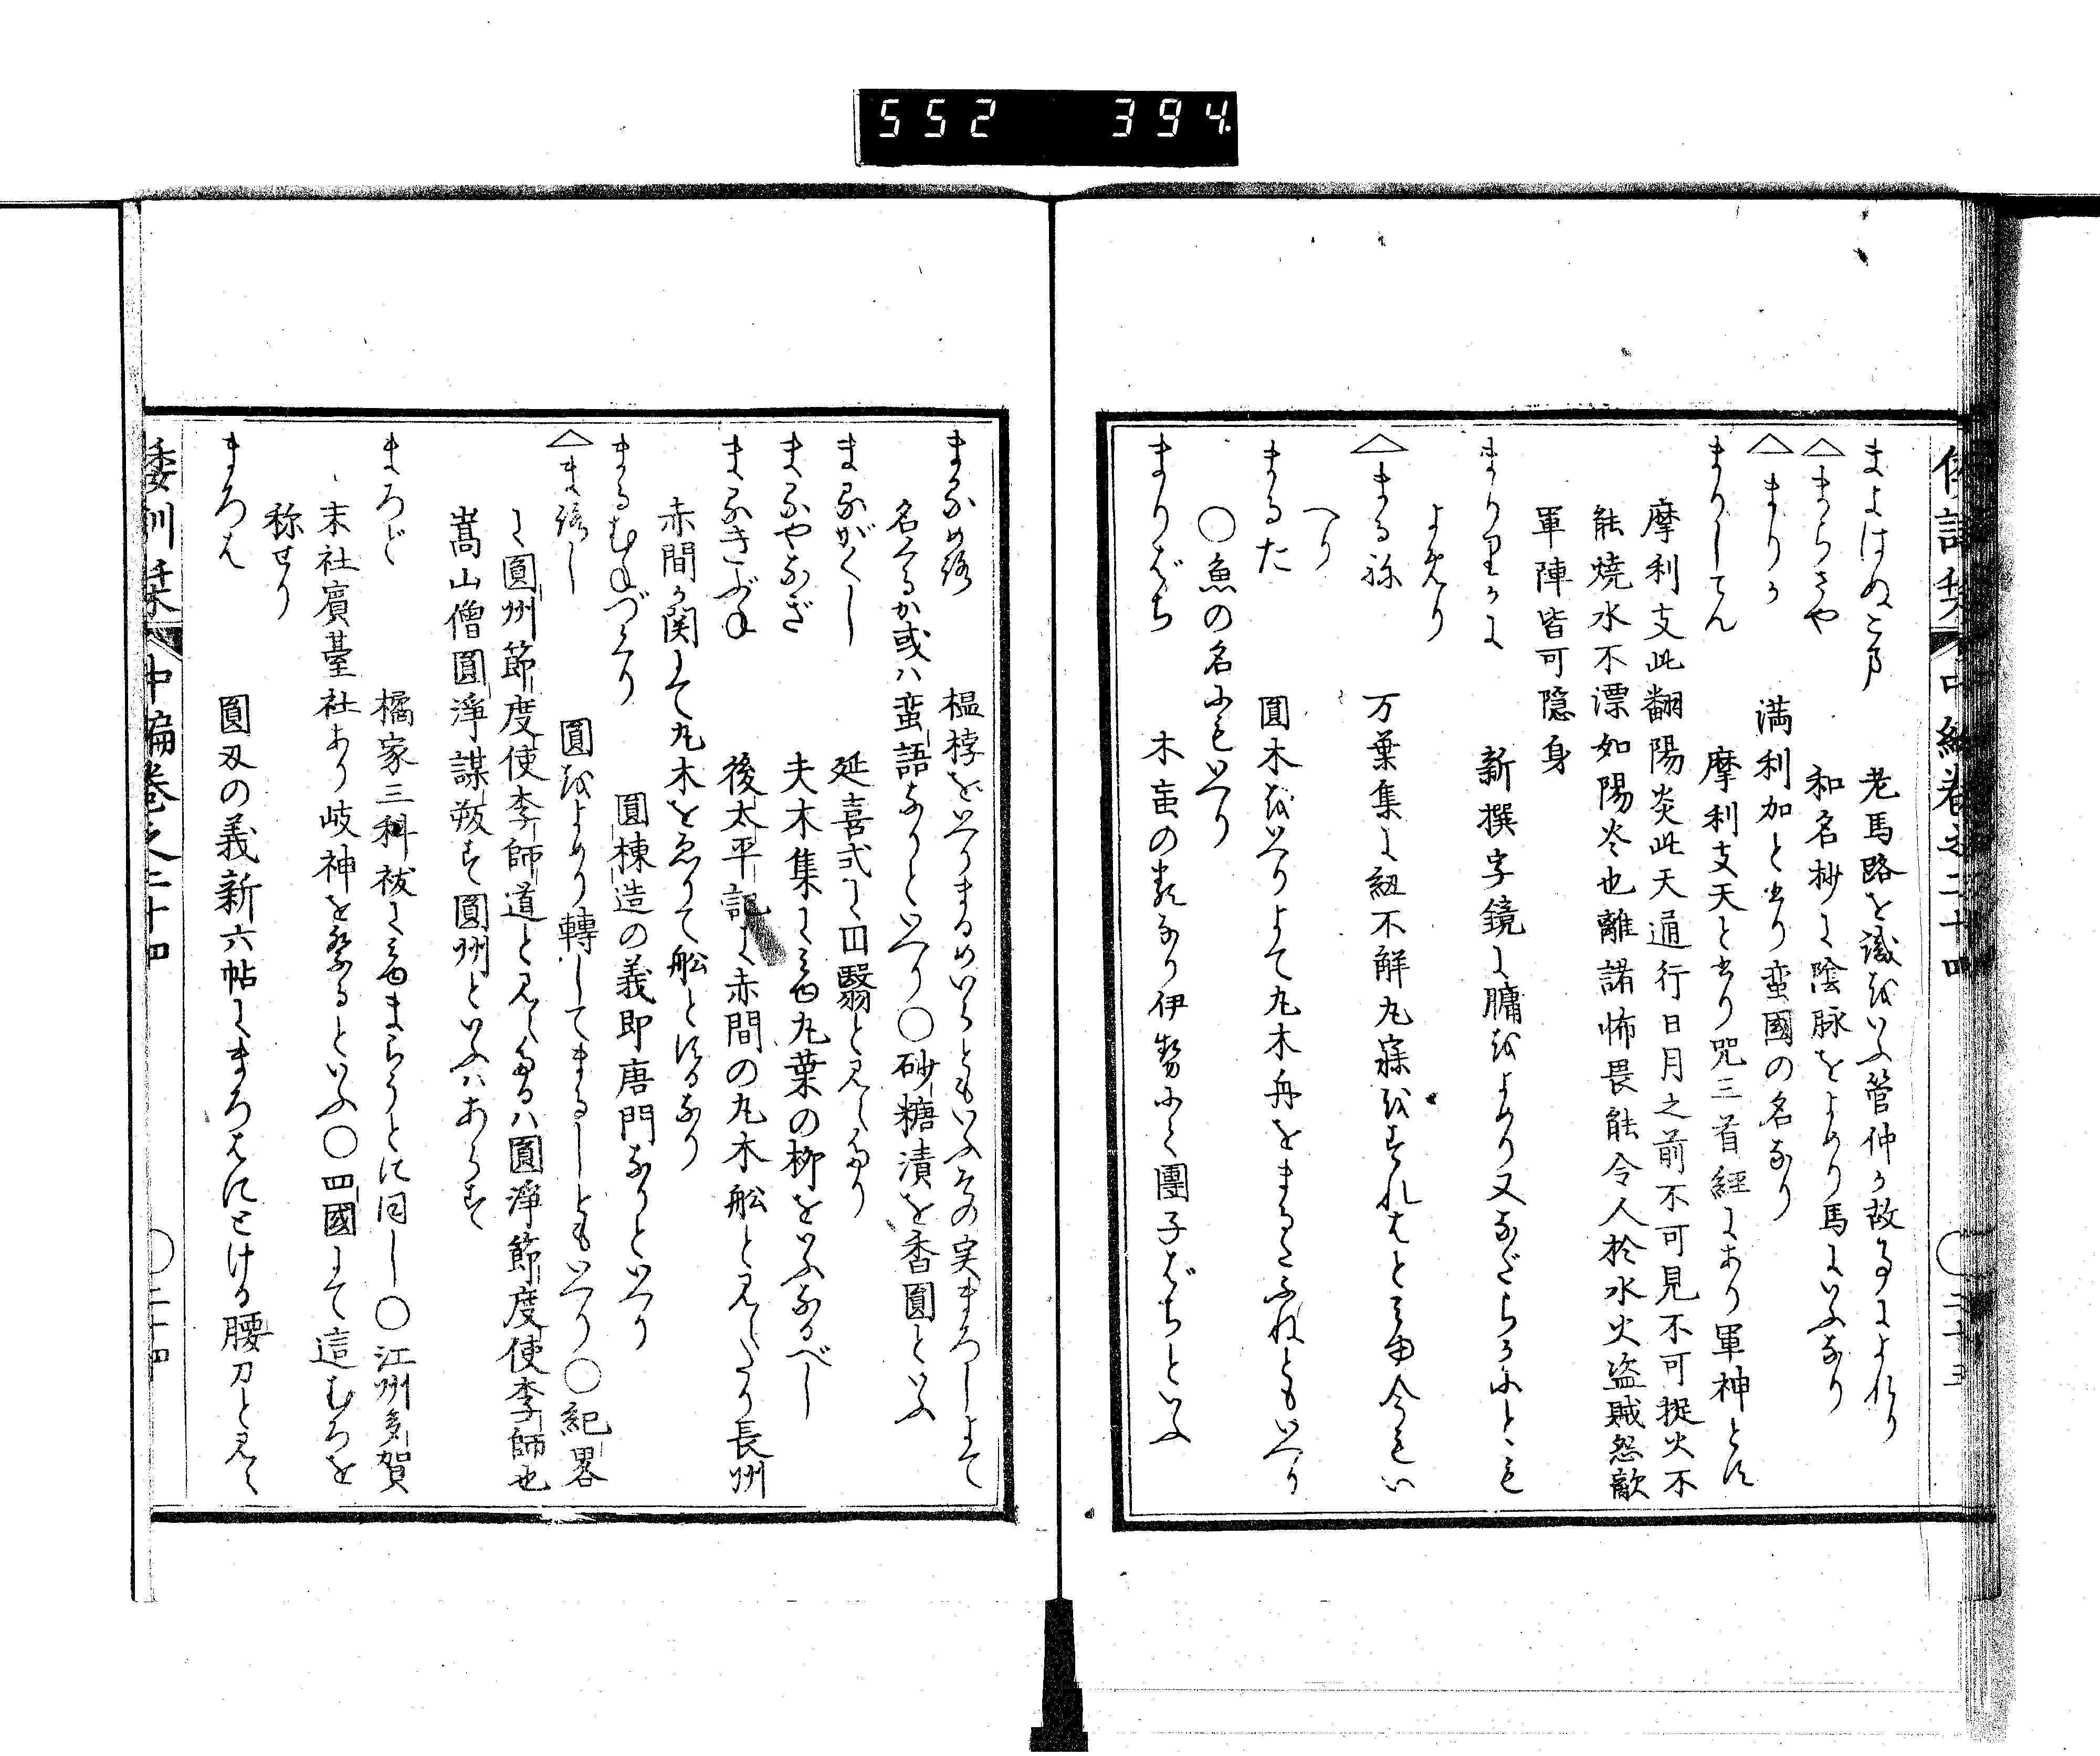 552 394
まよはぬこま 老馬路を識をいふ管仲か故事によれり
△まらさや 和名抄に陰脉をよめり馬にいふなり
△まりか 満利加と書り蛮國の名なり
まりしてん 摩利支天と書り咒三首經にあり軍神とす
摩利支此翻陽炎此天通行日月之前不可見不可捉火不
能燒水不漂如陽炎也離諸怖畏能令人於水火盗賊怨敵
軍陣皆可隱身
新撰字鏡に膅をよめり又なだらかにとも
よめり
△まる祢 万葉集に紐不解丸寐をすればと見ゆ今もい
へり
まるた 圓木をいへりよて丸木舟をまるたふねともいへり
○魚の名にもいへり
まりばち 木䖟の類なり伊勢にて團子ばちといふ
まるめろ 榲桲をいへりまるめいらともいふその実まろしよて
名くるか或ハ蛮語なりといへり○砂糖漬を香圓といふ
まるがくし 延喜式に𦊆翳と見えたり
まるやなぎ 夫木集に見ゆ丸葉の柳をいふなるべし
まるきぶね 後太平記に赤間の丸木舩と見えたり長州
赤間か関にて丸木をゑりて舩とするなり
まるむねづくり 圓棟造の義即唐門なりといへり
△まろし 圓をよめり轉してまるしともいへり○紀畧
に圓州節度使李師道と見えたるハ圓淨節度使李師也
嵩山僧圓淨謀叛す圓州といふハあらす
まろど 橘家三科祓に見ゆまらうとに同し○江州多賀
末社賔臺社あり岐神を祭るといふ○四國にて這むろを
称せり
まろは 圓刄の義新六帖にまろはにとける腰刀と見え
倭訓栞 中編巻之二十四 ○二十四